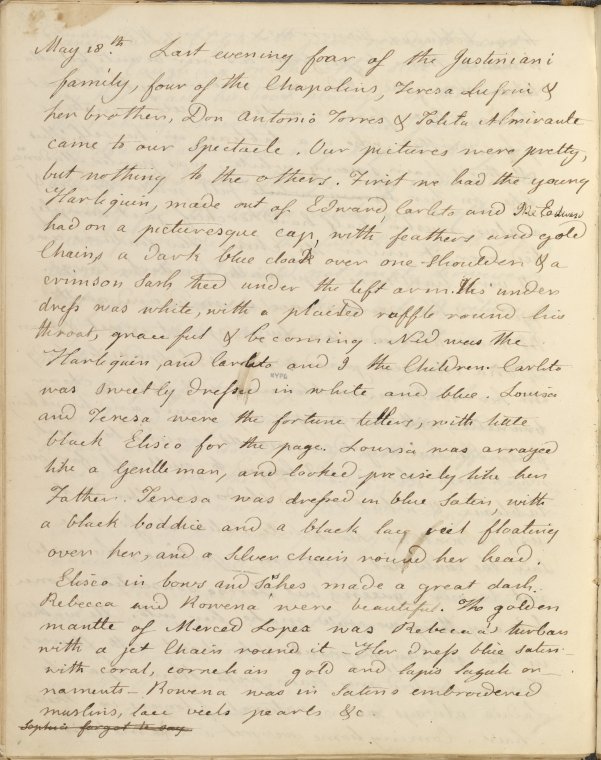 May 18.th Last evening four of the Justiniani
family, four of the Chapolins, Teresa Lufriu &
her brother, Don Antonio Torres & Lolita Almiraule
came to our Spectacle. Our pictures were pretty,
but nothing to the others. First we had the young
Harlequin, made out of Edward, Carlito and Me Edward
had on a picturesque cap, with feathers and gold
Chains a dark blue cloak over one shoulder & a
crimson Sash tied under the left arm. His under
dress was white, with a plaited ruffle round his
throat, graceful & becoming. Ned was the
Harlequin, and Carlito and I the Children. Carlito
NYPL
was sweetly dressed in white and blue. Louisa
and Teresa were the fortune tellers, with little
black Elisco for the page. Louisa was arrayed
like a Gentleman, and looked precisely like her
Father. Teresa was dressed in blue Saten, with
a black boddice and a black lay veil floating
over her, and a silver chain round her head.
Elisco in bows and Sashes made a great dash.
Rebecca and Rowena were beautiful. The golden
mantle of Merced Lopez was Rebecca's turban
with a jet Chain round it - Her dress blue Satin -
with coral, cornelian gold and lapis lazule or-
naments - Rowena was in Satins embroidered
muslins, lace veels pearls &c
Sophia forgot to say